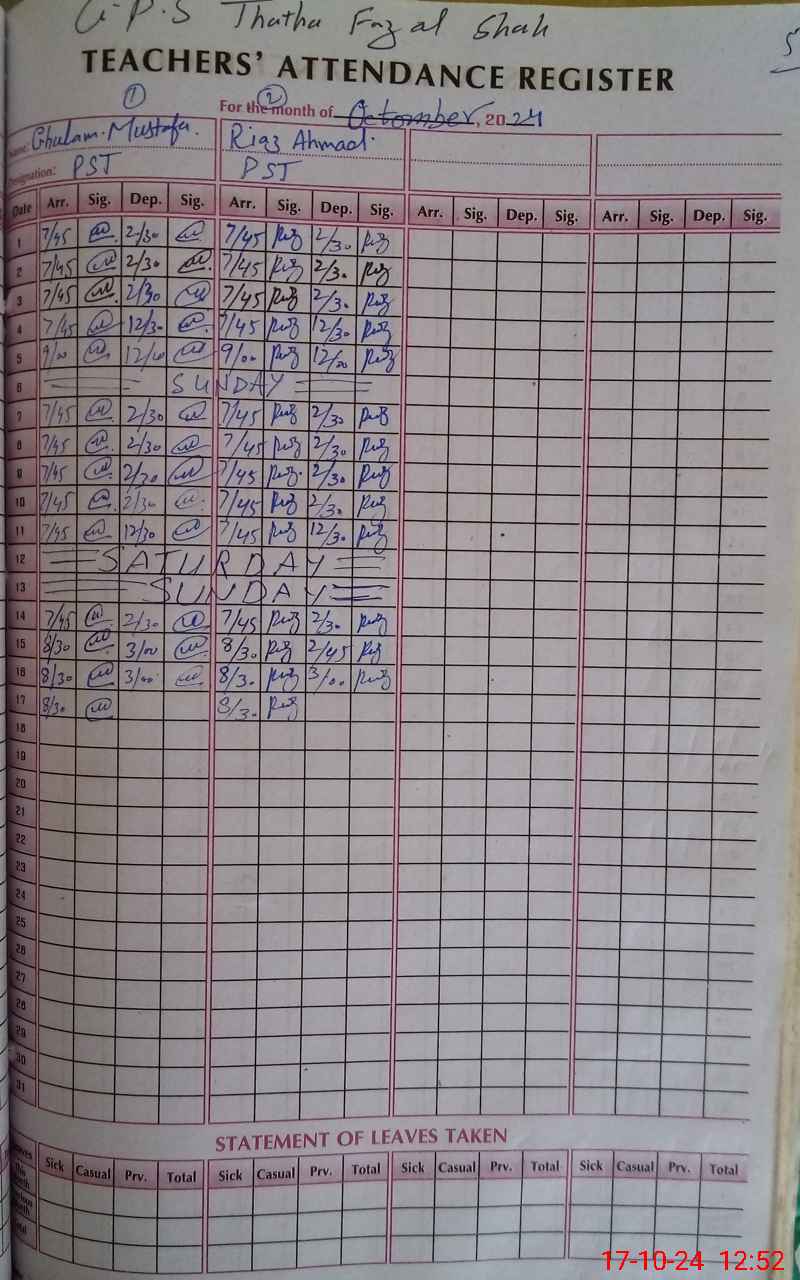 G.P.S Thatha Fazal Shah
5
TEACHERS' ATTENDANCE REGISTER
1 2
For the month of Octomber, 2024
Name: Ghulam Mustafa. Riaz Ahmad.
Designation: PST PST
Date Arr. Sig. Dep. Sig. Arr. Sig. Dep. Sig. Arr. Sig. Dep. Sig. Arr. Sig. Dep. Sig.
1 7/45 2/30 7/45 2/30
2 7/45 2/30 7/45 2/30
3 7/45 2/30 7/45 2/30
4 7/45 12/30 7/45 12/30
5 9/00 12/00 9/00 12/00
6 SUNDAY
7 7/45 2/30 7/45 2/30
8 7/45 2/30 7/45 2/30
9 7/45 2/30 7/45 2/30
10 7/45 2/30 7/45 2/30
11 7/45 12/30 7/45 12/30
12 SATURDAY
13 SUNDAY
14 7/45 2/30 7/45 2/30
15 8/30 3/00 8/30 2/45
16 8/30 3/00 8/30 3/00
17 8/30 8/30
18
19
20
21
22
23
24
25
26
27
28
29
30
31
STATEMENT OF LEAVES TAKEN
Sick Casual Prv. Total Sick Casual Prv. Total Sick Casual Prv. Total Sick Casual Prv. Total
17-10-24 12:52